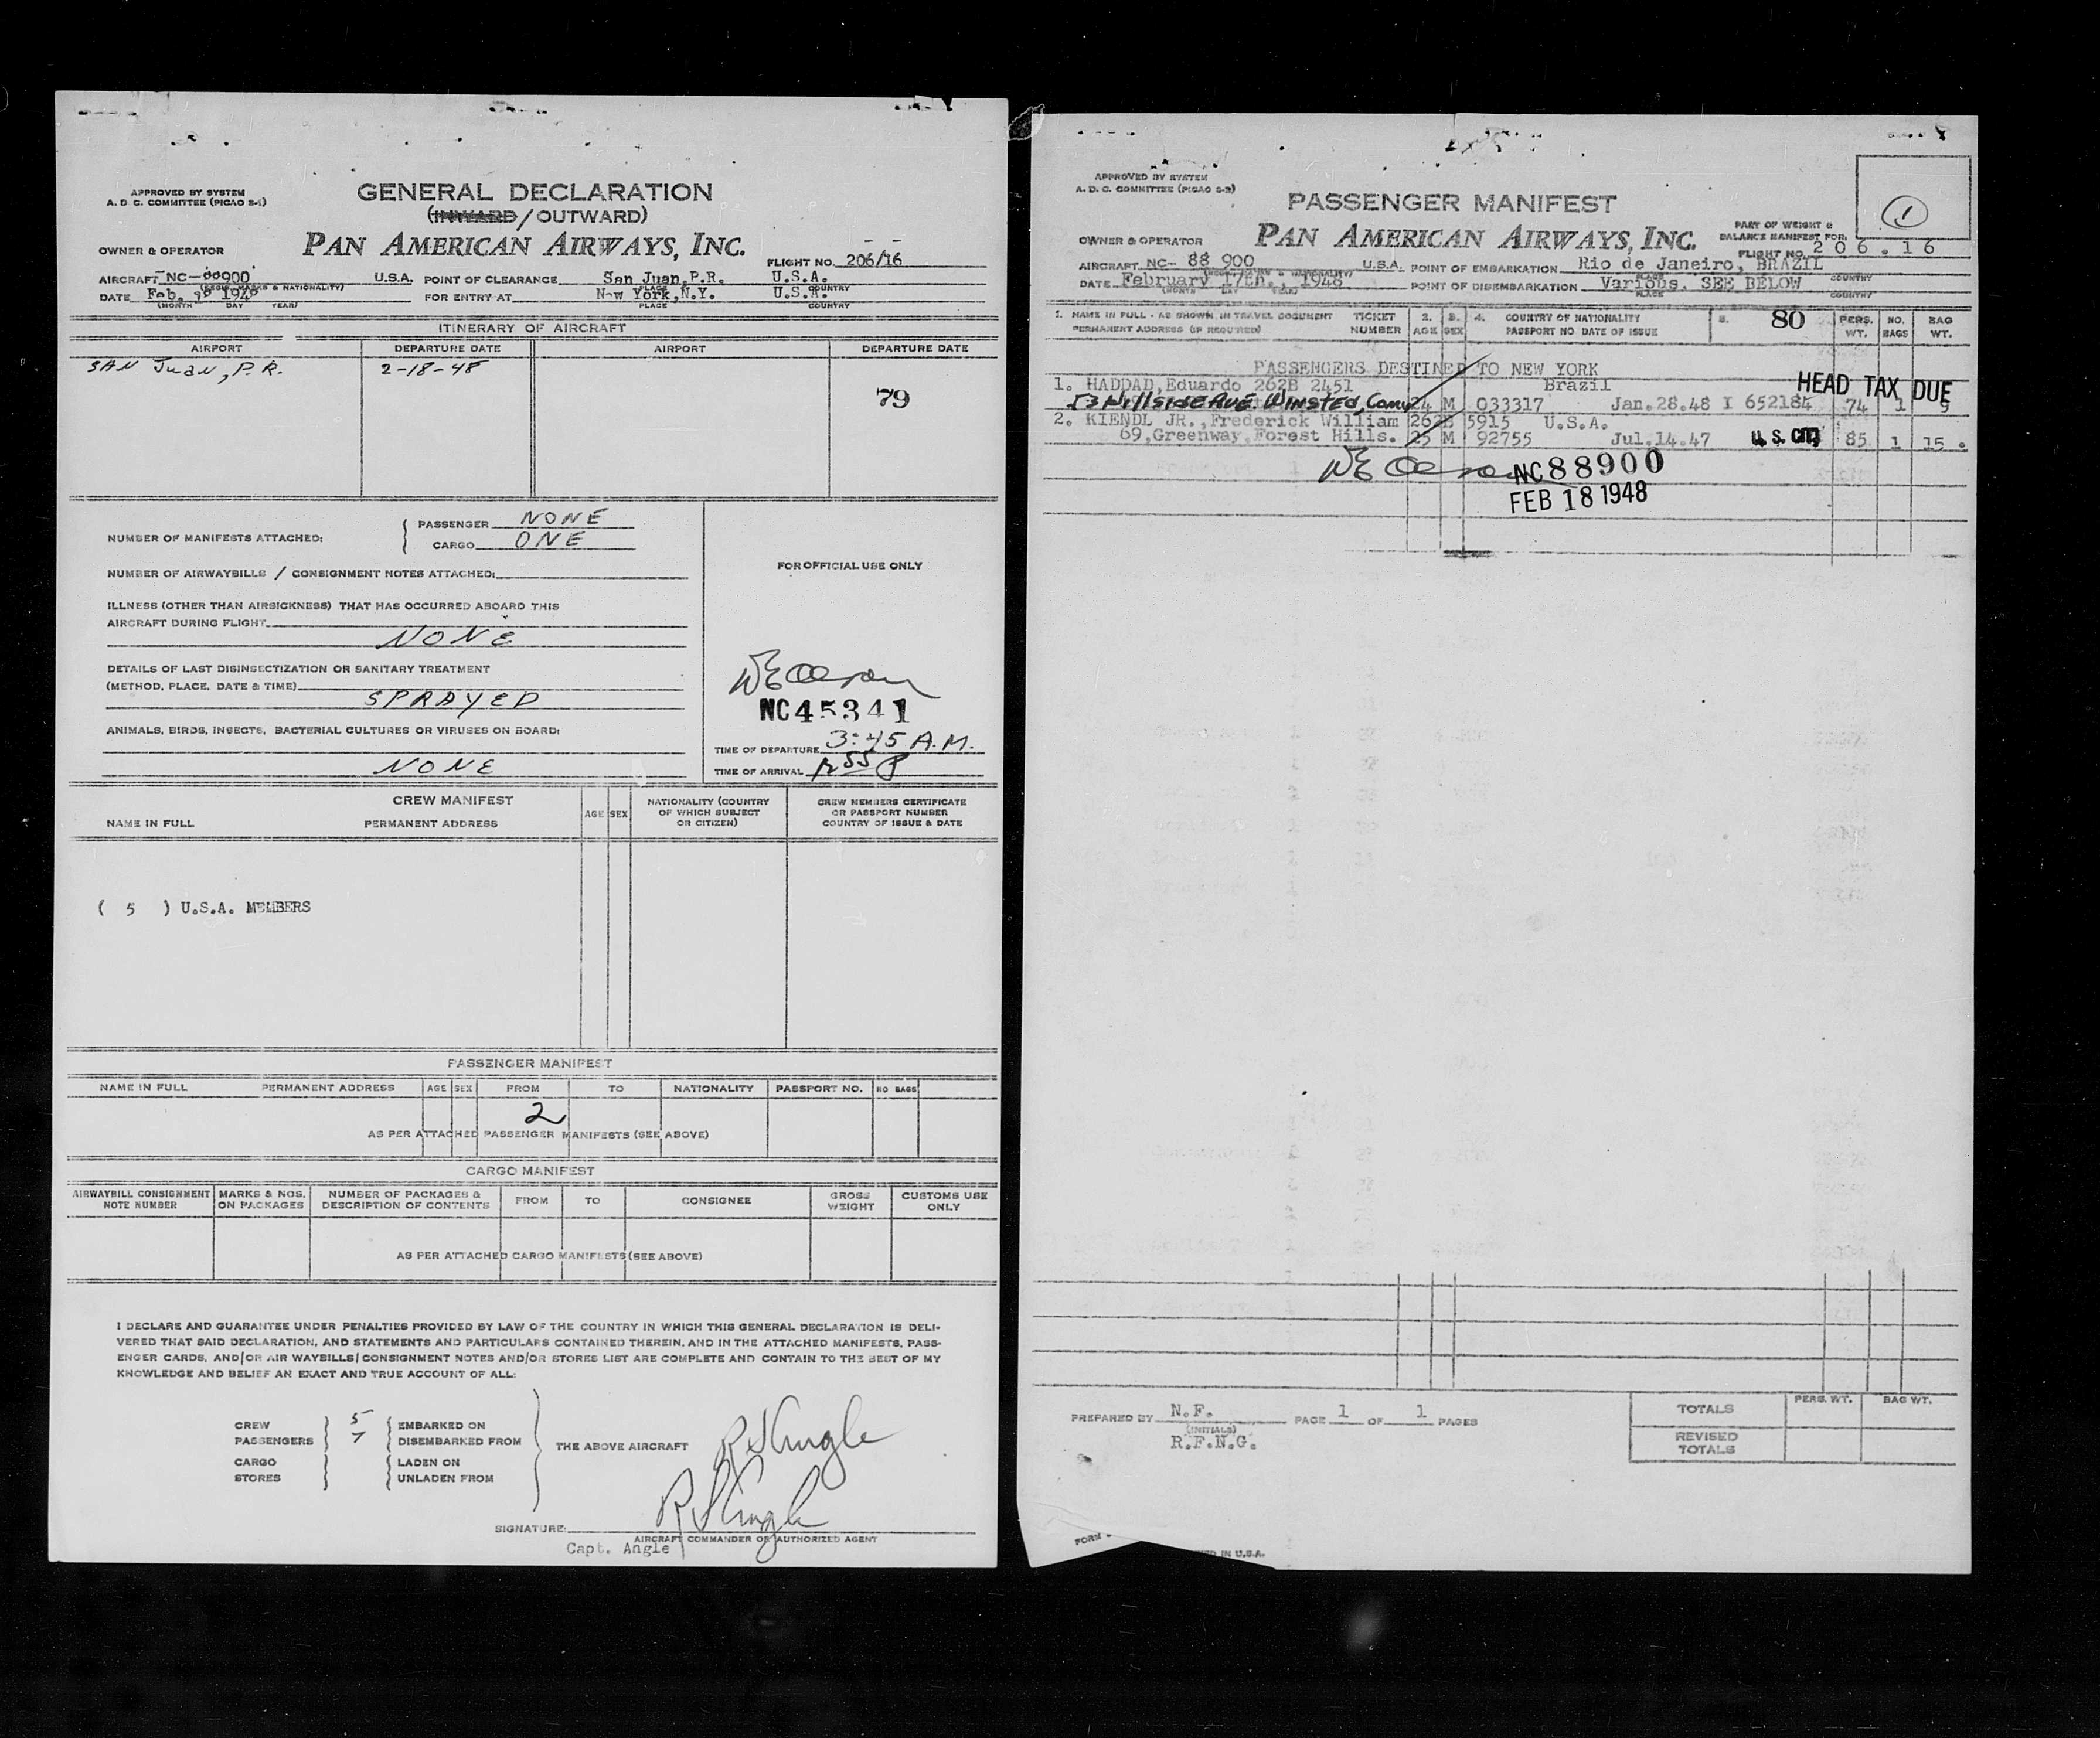 APPROVED BY SYSTEM
A. D. C. COMMITTEE (PICAO S-1)
GENERAL DECLARATION
(INWARD/OUTWARD)
OWNER & OPERATOR
PAN AMERICAN AIRWAYS, INC.
FLIGHT NO. 206/16
AIRCRAFT NC-88900 U.S.A. POINT OF CLEARANCE San Juan,P.R. U.S.A.
(REGIS. MARKS & NATIONALITY) PLACE COUNTRY
DATE Feb. 18 1948 FOR ENTRY AT New York,N.Y. U.S.A.
(MONTH DAY YEAR) PLACE COUNTRY
ITINERARY OF AIRCRAFT
AIRPORT DEPARTURE DATE AIRPORT DEPARTURE DATE
SAN Juan, P.R. 2-18-48
79
NUMBER OF MANIFESTS ATTACHED: PASSENGER NONE
CARGO ONE
NUMBER OF AIRWAYBILLS / CONSIGNMENT NOTES ATTACHED:
ILLNESS (OTHER THAN AIRSICKNESS) THAT HAS OCCURRED ABOARD THIS
AIRCRAFT DURING FLIGHT
NONE
DETAILS OF LAST DISINSECTIZATION OR SANITARY TREATMENT
(METHOD, PLACE, DATE & TIME)
SPRAYED
ANIMALS, BIRDS, INSECTS, BACTERIAL CULTURES OR VIRUSES ON BOARD:
NONE
FOR OFFICIAL USE ONLY
NC45341
TIME OF DEPARTURE 3:45 A.M.
TIME OF ARRIVAL
CREW MANIFEST
NAME IN FULL PERMANENT ADDRESS
AGE SEX
NATIONALITY (COUNTRY
OF WHICH SUBJECT
OR CITIZEN)
CREW MEMBERS CERTIFICATE
OR PASSPORT NUMBER
COUNTRY OF ISSUE & DATE
( 5 ) U.S.A. MEMBERS
PASSENGER MANIFEST
NAME IN FULL PERMANENT ADDRESS AGE SEX FROM TO NATIONALITY PASSPORT NO. NO BAGS
2
AS PER ATTACHED PASSENGER MANIFESTS (SEE ABOVE)
CARGO MANIFEST
AIRWAYBILL CONSIGNMENT
NOTE NUMBER
MARKS & NOS.
ON PACKAGES
NUMBER OF PACKAGES &
DESCRIPTION OF CONTENTS
FROM TO CONSIGNEE
GROSS
WEIGHT
CUSTOMS USE
ONLY
AS PER ATTACHED CARGO MANIFESTS (SEE ABOVE)
I DECLARE AND GUARANTEE UNDER PENALTIES PROVIDED BY LAW OF THE COUNTRY IN WHICH THIS GENERAL DECLARATION IS DELI-
VERED THAT SAID DECLARATION, AND STATEMENTS AND PARTICULARS CONTAINED THEREIN, AND IN THE ATTACHED MANIFESTS, PASS-
ENGER CARDS, AND/OR AIR WAYBILLS/CONSIGNMENT NOTES AND/OR STORES LIST ARE COMPLETE AND CONTAIN TO THE BEST OF MY
KNOWLEDGE AND BELIEF AN EXACT AND TRUE ACCOUNT OF ALL:
CREW 5 EMBARKED ON
PASSENGERS 7 DISEMBARKED FROM
CARGO LADEN ON
STORES UNLADEN FROM
THE ABOVE AIRCRAFT
SIGNATURE:
AIRCRAFT COMMANDER OR AUTHORIZED AGENT
Capt. Angle
APPROVED BY SYSTEM
A. D. C. COMMITTEE (PICAO S-2)
PASSENGER MANIFEST
1
OWNER & OPERATOR
PAN AMERICAN AIRWAYS, INC.
PART OF WEIGHT &
BALANCE MANIFEST FOR
FLIGHT NO. 206.16
AIRCRAFT NC- 88 900 U.S.A. POINT OF EMBARKATION Rio de Janeiro, BRAZIL
PLACE COUNTRY
DATE February 17th., 1948 POINT OF DISEMBARKATION Various. SEE BELOW
(MONTH DAY YEAR) PLACE COUNTRY
1. NAME IN FULL - AS SHOWN IN TRAVEL DOCUMENT
PERMANENT ADDRESS (IF REQUIRED)
TICKET
NUMBER
2.
AGE
3.
SEX
4. COUNTRY OF NATIONALITY
PASSPORT NO. DATE OF ISSUE
5. 80
PERS.
WT.
NO.
BAGS
BAG
WT.
PASSENGERS DESTINED TO NEW YORK
1. HADDAD,Eduardo 262B 2451 Brazil HEAD TAX DUE
53 Hillside Ave. Winsted, Conn 24 M 033317 Jan.28.48 I 652184 74 1 9
2. KIENDL JR.,Frederick William 262B 5915 U.S.A.
69,Greenway,Forest Hills. 25 M 92755 Jul.14.47 U.S. CIT 85 1 15.
NC88900
FEB 18 1948
PREPARED BY N.F. PAGE 1 OF 1 PAGES
(INITIALS)
R.F.N.G.
PERS. WT. BAG WT.
TOTALS
REVISED
TOTALS
FORM
IN U.S.A.